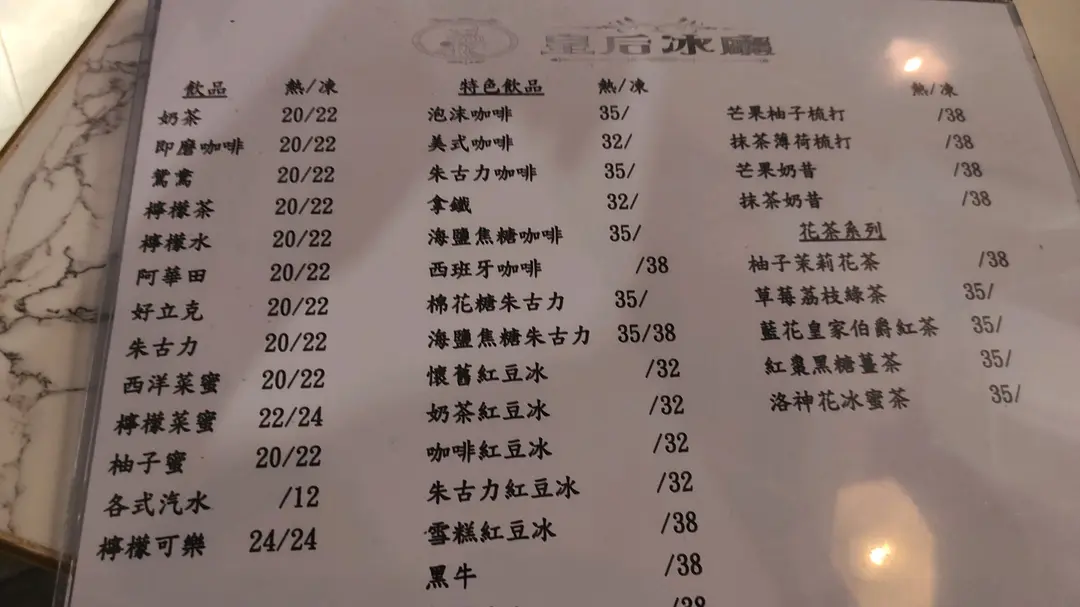 皇后冰廳
飲品 熱/凍
奶茶 20/22
即磨咖啡 20/22
鴛鴦 20/22
檸檬茶 20/22
檸檬水 20/22
阿華田 20/22
好立克 20/22
朱古力 20/22
西洋菜蜜 20/22
檸檬菜蜜 22/24
柚子蜜 20/22
各式汽水 /12
檸檬可樂 24/24
特色飲品 熱/凍
泡沫咖啡 35/
美式咖啡 32/
朱古力咖啡 35/
拿鐵 32/
海鹽焦糖咖啡 35/
西班牙咖啡 /38
棉花糖朱古力 35/
海鹽焦糖朱古力 35/38
懷舊紅豆冰 /32
奶茶紅豆冰 /32
咖啡紅豆冰 /32
朱古力紅豆冰 /32
雪糕紅豆冰 /38
黑牛 /38
/38
熱/凍
芒果柚子梳打 /38
抹茶薄荷梳打 /38
芒果奶昔 /38
抹茶奶昔 /38
花茶系列
柚子茉莉花茶 /38
草莓荔枝綠茶 35/
藍花皇家伯爵紅茶 35/
紅棗黑糖薑茶 35/
洛神花冰蜜茶 35/